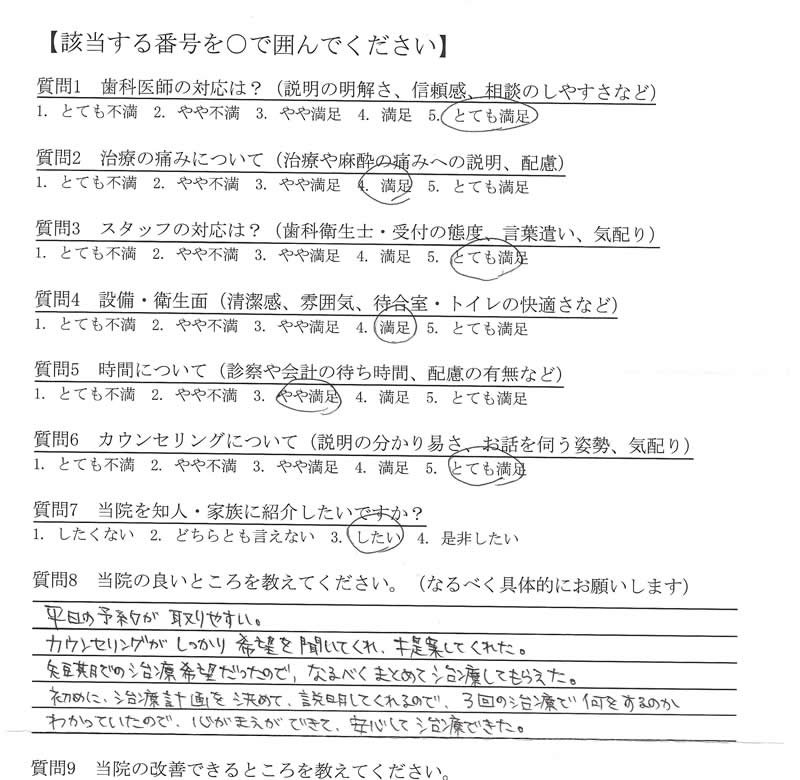 【該当する番号を○で囲んでください】
質問1　歯科医師の対応は？（説明の明解さ、信頼感、相談のしやすさなど）
1. とても不満　2. やや不満　3. やや満足　4. 満足　5. とても満足
質問2　治療の痛みについて（治療や麻酔の痛みへの説明、配慮）
1. とても不満　2. やや不満　3. やや満足　4. 満足　5. とても満足
質問3　スタッフの対応は？（歯科衛生士・受付の態度、言葉遣い、気配り）
1. とても不満　2. やや不満　3. やや満足　4. 満足　5. とても満足
質問4　設備・衛生面（清潔感、雰囲気、待合室・トイレの快適さなど）
1. とても不満　2. やや不満　3. やや満足　4. 満足　5. とても満足
質問5　時間について（診察や会計の待ち時間、配慮の有無など）
1. とても不満　2. やや不満　3. やや満足　4. 満足　5. とても満足
質問6　カウンセリングについて（説明の分かり易さ、お話を伺う姿勢、気配り）
1. とても不満　2. やや不満　3. やや満足　4. 満足　5. とても満足
質問7　当院を知人・家族に紹介したいですか？
1. したくない　2. どちらとも言えない　3. したい　4. 是非したい
質問8　当院の良いところを教えてください。（なるべく具体的にお願いします）
平日の予約が取りやすい。
カウンセリングがしっかり希望を聞いてくれ、提案してくれた。
短期での治療希望だったので、なるべくまとめて治療してもらえた。
初めに、治療計画を決めて、説明してくれるので、3回の治療で何をするのか
わかっていたので、心がまえができて、安心して治療できた。
質問9　当院の改善できるところを教えてください。